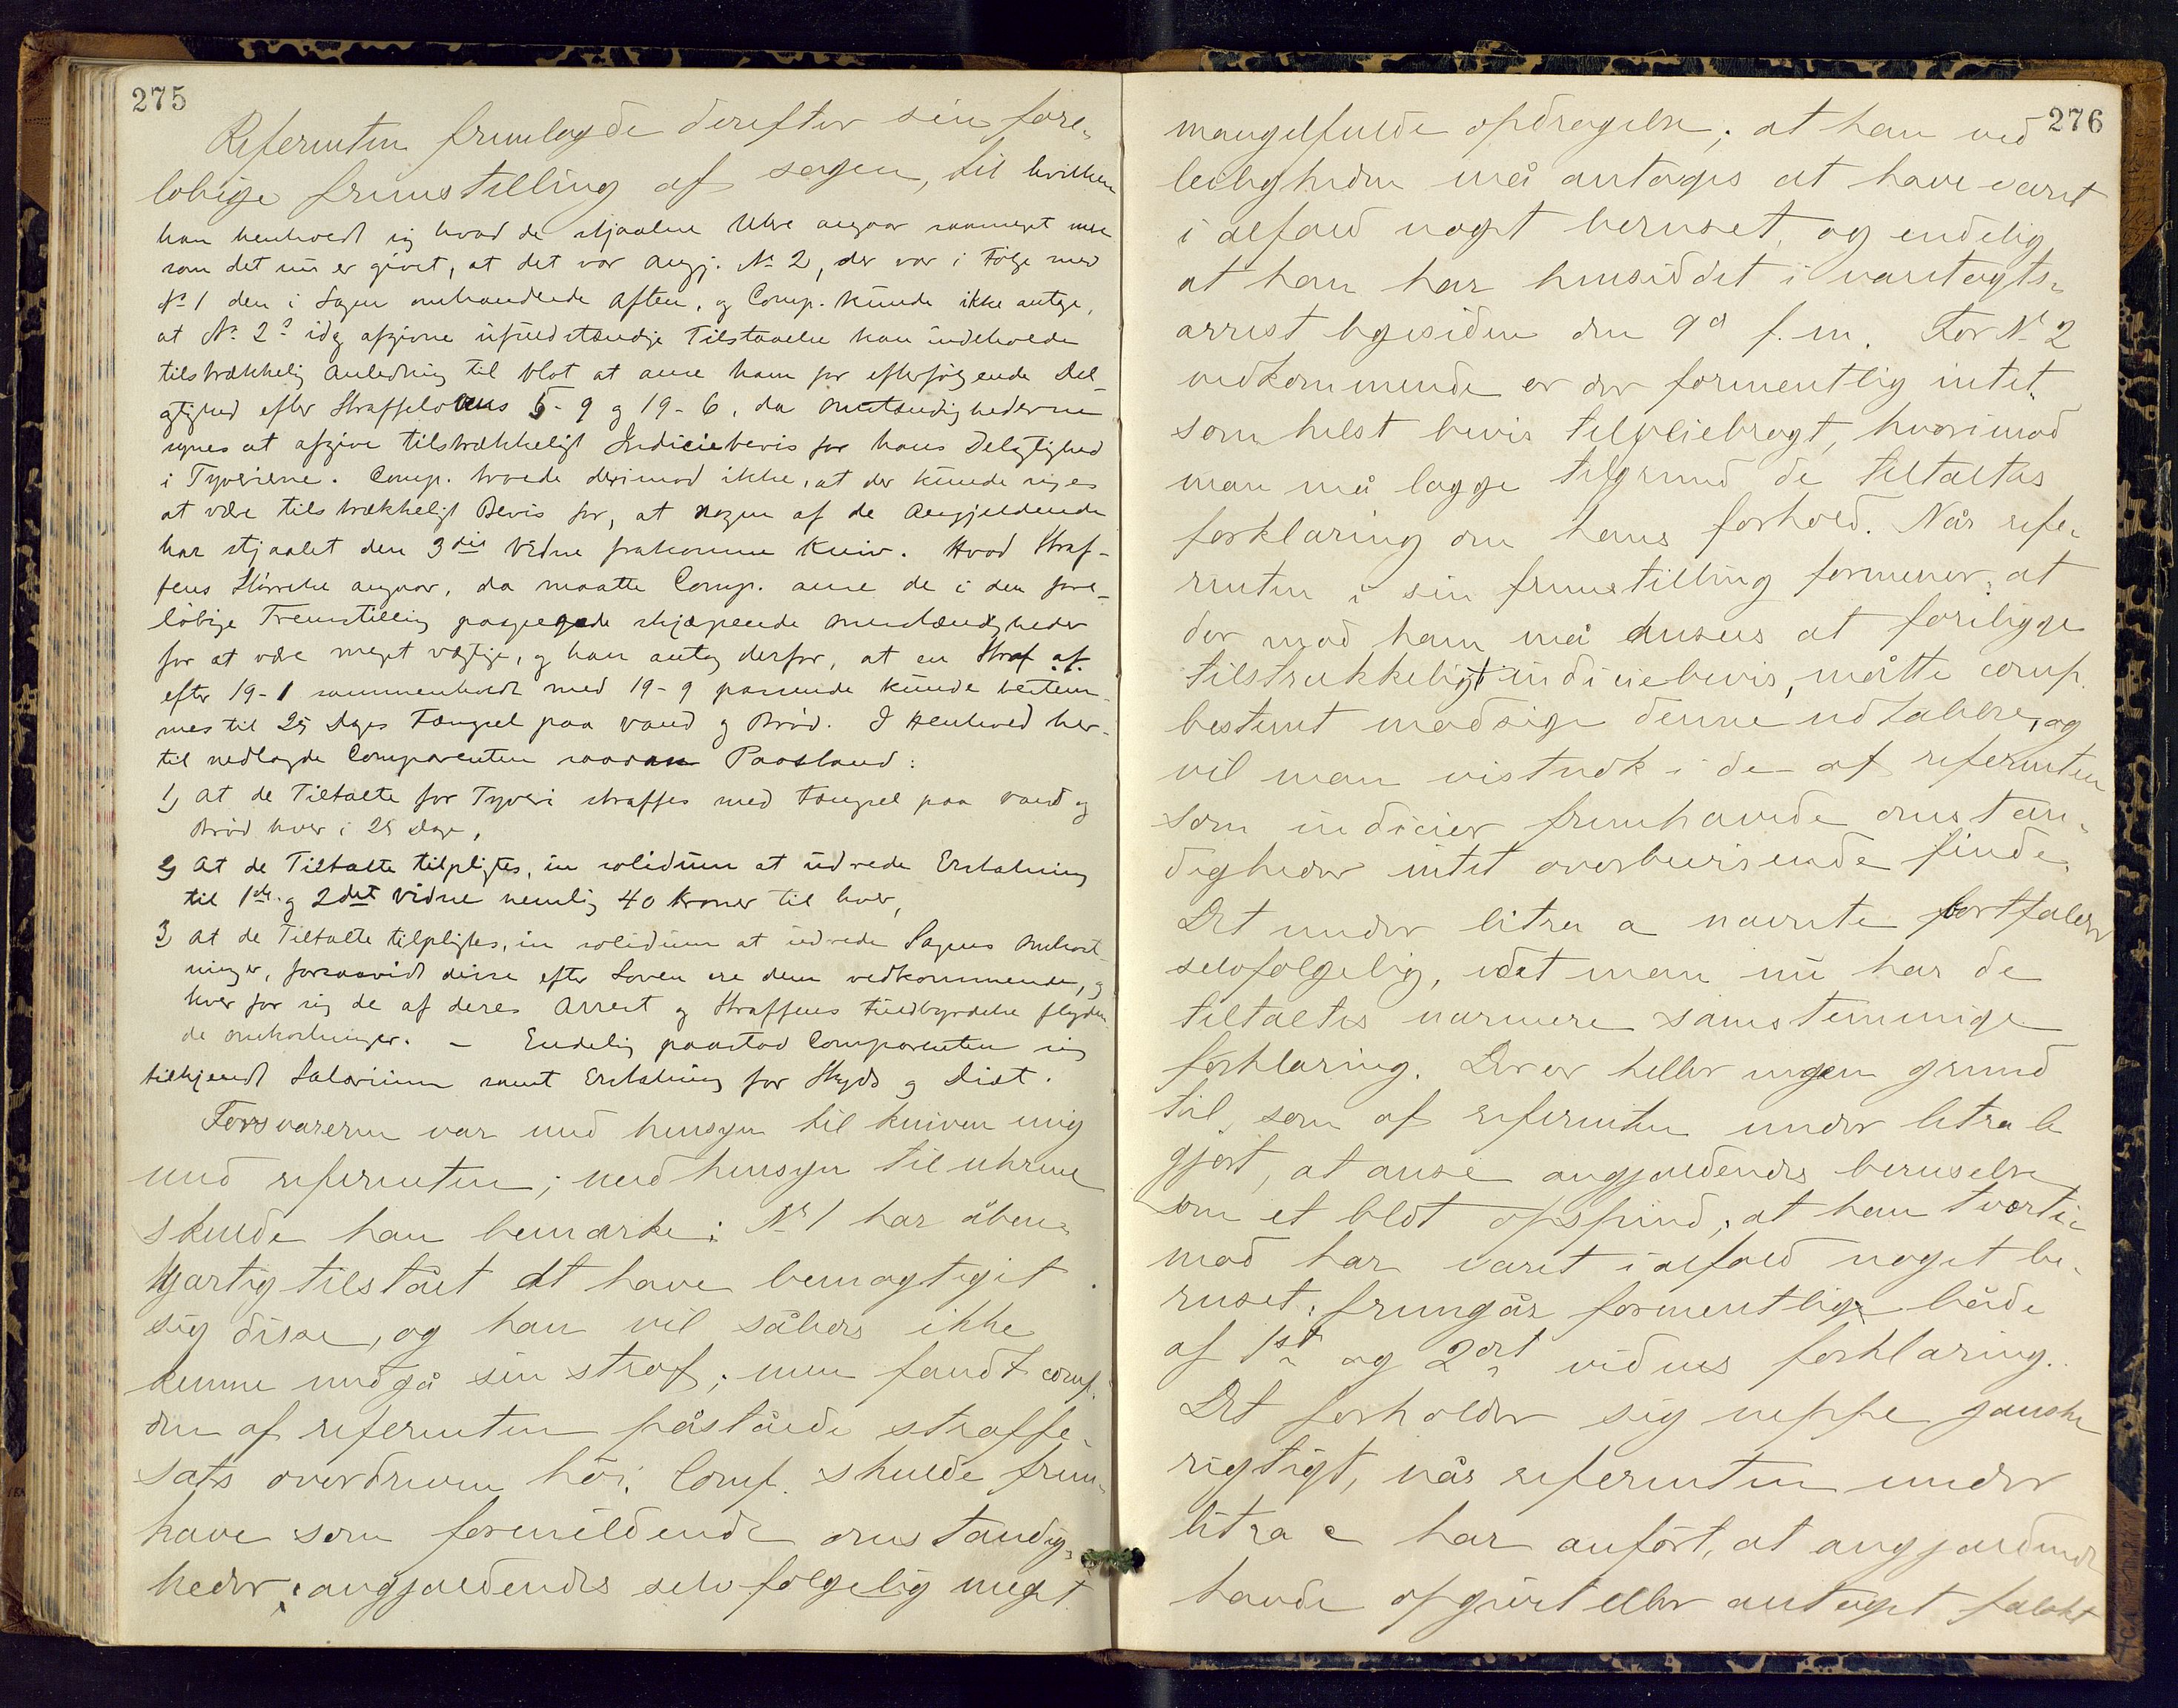 275
Referenten fremlagde derefter sin fore-
løbige fremstilling af sagen, til hvilken
han henholdt sig hvad de stjaalne Uhre angaar saameget mere
som det nu er givet, at det var Angj. No 2, der var i Følge med
No 1 den i Sagen omhandlede Aften, og Comp. kunde ikke antage,
at No 2s idag afgivne ufuldstændige Tilstaaelse kan indeholde
tilstrækkelig Anledning til blot at anse ham for efterfølgende Del-
agtighed efter Straffelovens 5-9 og 19-6, da Omstændighederne
synes at afgive tilstrækkeligt Indiciebevis for hans Delagtighed
i Tyverierne. Comp. troede derimod ikke, at der kunde siges
at være tilstrækkeligt Bevis for, at nogen af de Angjældende
har stjaalet den 3die Vidne frakomne Kniv. Hvad Straf-
fens Størrelse angaar, da maatte Comp. anse de i den fore-
løbige Fremstilling paapegede skjærpende Omstændigheder
for at være meget vægtige, og han antog derfor, at en Straf af
efter 19-1 sammenholdt med 19-9 passende kunde bestem-
mes til 25 Dages Fængsel paa Vand og Brød. I Henhold her-
til nedlagde Comparenten saadan Paastand:
1) At de Tiltalte for Tyveri straffes med Fængsel paa Vand og
Brød hver i 25 Dage,
2) At de Tiltalte tilpligtes, in solidum at udrede Erstatning
til 1ste og 2det Vidne nemlig 40 Kroner til hver,
3) At de Tiltalte tilpligtes, in solidum at udrede Sagens Omkost-
ninger, forsaavidt disse efter Loven ere dem vedkommende, og
hver for sig de af deres Arrest og Straffens Fuldbyrdelse flyden-
de Omkostninger. - Endelig paastod Comparenten sig
tilkjendt Salarium samt Erstatning for Skyds og Diæt.
Forsvareren var med hensyn til kniven enig
med referenten; med hensyn til uhrene
skulde han bemærke: No 1 har åben-
hjærtig tilstået at have bemægtiget
sig disse, og han vil således ikke
kunne undgå sin straf; men fandt comp.
den af referenten påståede straffe-
sats overdreven høi. Comp. skulde frem-
hæve som formildende omstændig-
heder: angjældendes selvfølgelig meget
276
mangelfulde opdragelse; at han ved
leiligheden må antages at have været
i alfald noget beruset, og endelig
at han har hensiddet i varetægts-
arrest ligesiden den 9d f.m. For No 2
vedkommende er der formentlig intet-
somhelst bevis tilveiebragt, hvorimod
man må lægge tilgrund de tiltaltes
forklaring om hans forhold. Når refe-
renten i sin fremstilling formener, at
der mod ham må anses at foreligge
tilstrækkeligt indiciebevis, måtte comp.
bestemt modsige denne udtalelse, og
vil man vistnok i de af referenten
som indicier fremhævede omstæn-
digheder intet overbevisende finde.
Det under litra a nævnte bortfalder
selvfølgelig, idet man nu har de
tiltaltes nærmere samstemmige
forklaring. Der er heller ingen grund
til, som af referenten under litra b
gjort, at anse angjældendes beruselse
som et blot opspind; at han tværti-
mod har været i alfald noget be-
ruset, fremgår formentlig både
af 1st og 2det vidnes forklaring.
Det forholder sig neppe ganske
rigtigt, når referenten under
litra c har anført, at angjældende
havde opgivet eller antaget falskt